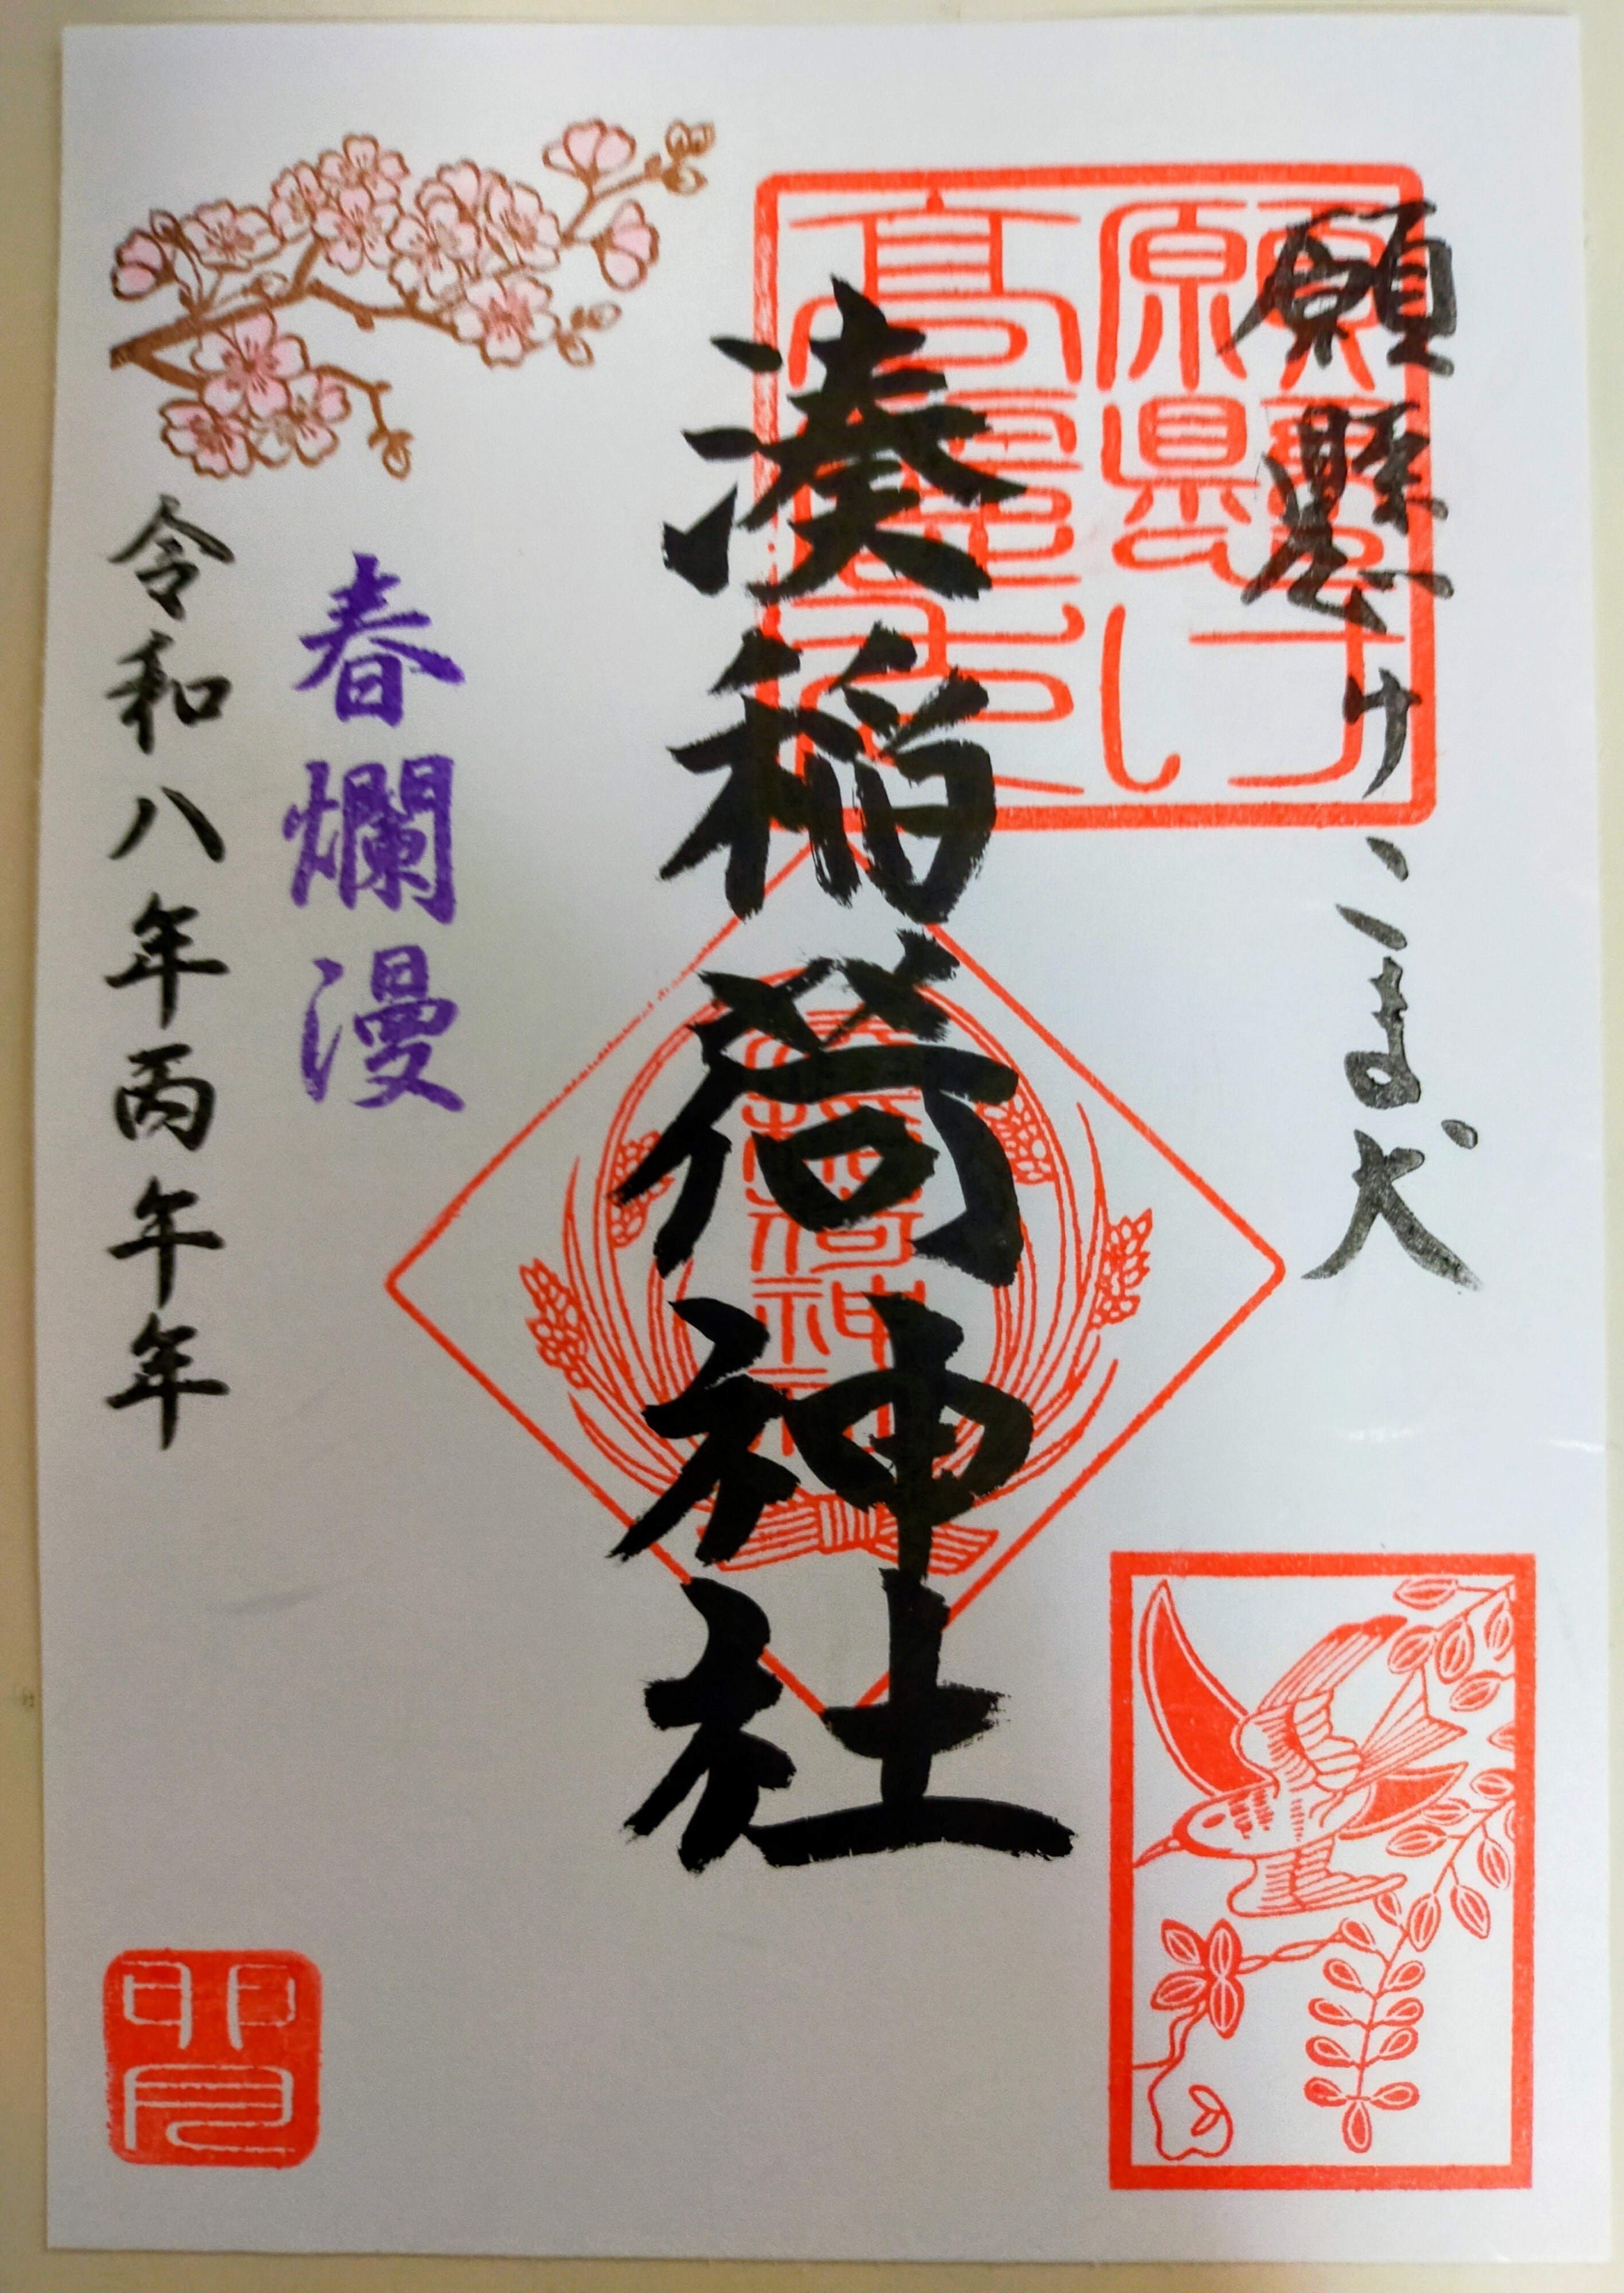 願懸け
こま犬
願懸け
湊稲荷神社
稲荷神
春爛漫
令和八年丙午年
卯月